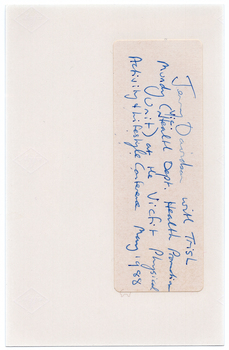 Terry Davidson with Trish
Mundy (Health Dept. Health Promotion
Unit) at the Vicfit Physical
Activity & Lifestyle Conference May 1988